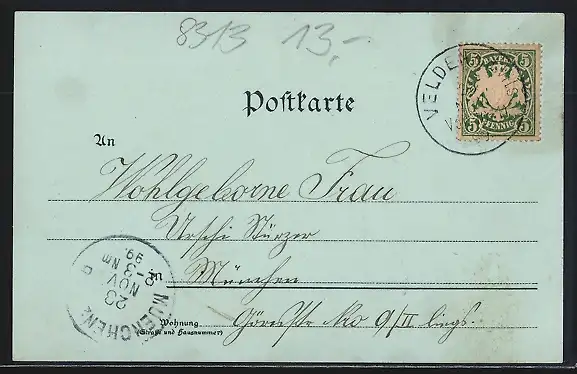 8313 13,-
VELDEN
5 BAYERN 5
5 PFENNIG 5
Postkarte
An
Wohlgeborne Frau
Urschi Würzer
in München
Wohnung Görresstr No 9/II links.
(Straße und Hausnummer)
MUENCHEN.
20
NOV
2-3 Nm
99.